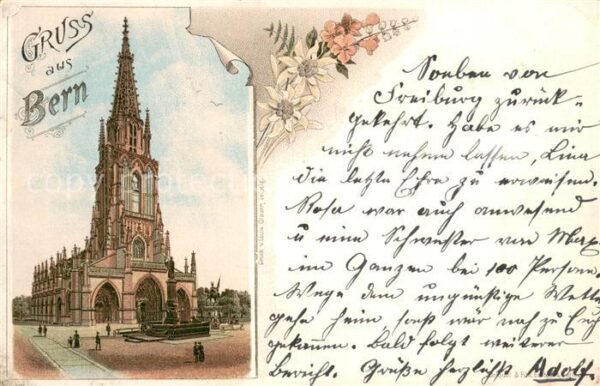 GRUSS
aus
Bern
Soeben von
Freiburg zurück-
gekehrt. Habe es mir
nicht nehmen lassen, Lina
die letzte Ehre zu erweisen.
Rosa war auch anwesend
u eine Schwester von Max,
im Ganzen bei 100 Persone
Wege dem ungünstige Wette
gehe heim sonst wär nach zu Euch
gekommen. Bald folgt weiterer
Bericht. Grüße herzlichst Adolf.